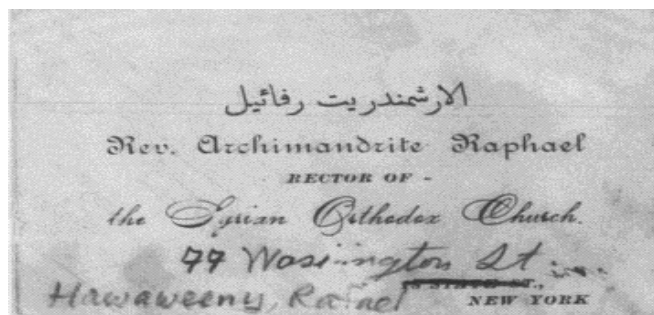 الارشمندريت رفائيل
Rev. Archimandrite Raphael
RECTOR OF -
the Syrian Orthodox Church.
77 Washington St
Hawaweeny, Rafael
NEW YORK